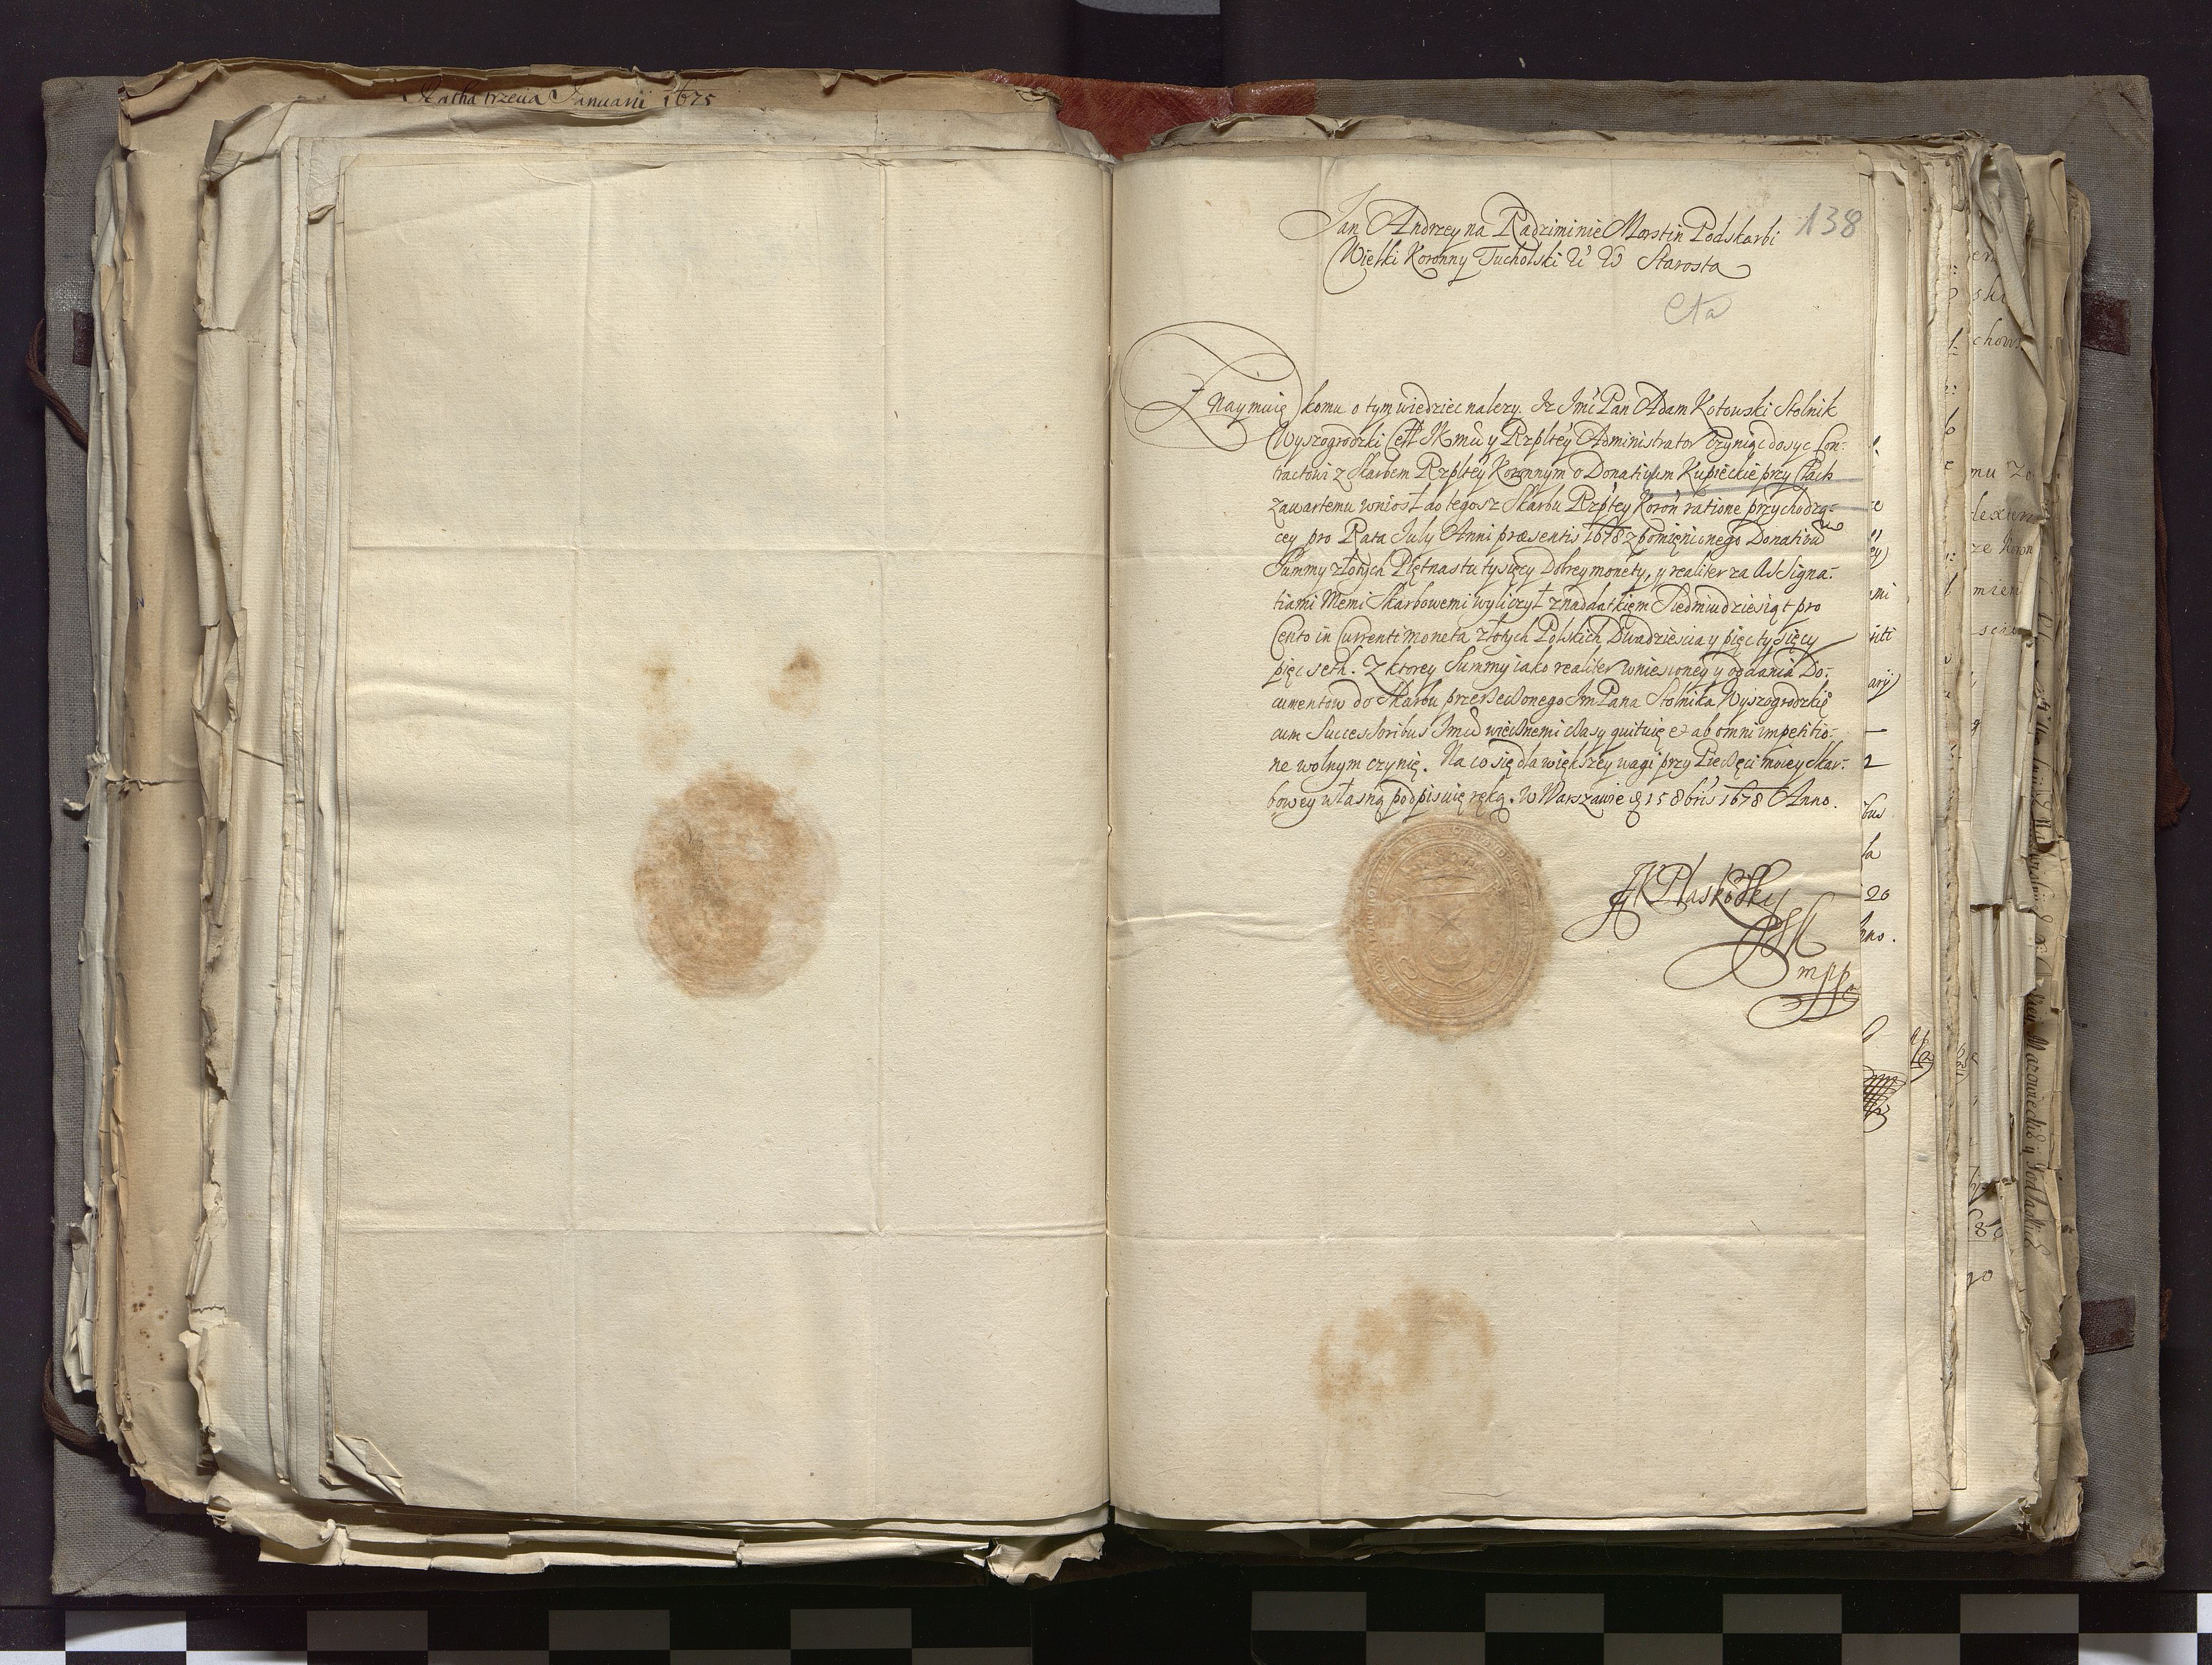 Ratha trzecia Januarii 1675
138
Jan Andrzey na Radziminie Morstin Podskarbi
Wielki Koronny Tucholski &c &c Starosta
Cła
Znaymuię komu o tym wiedziec nalezy. Iz Imć Pan Adam Kotowski Stolnik
Wyszogrodzki Cełł JKmći y Rzpltey Administrator czyniąc dosyc Con-
tractowi z Skarbem Rzpltey Koronnym o Donativum Kupieckie przy Cłach
zawartemu wniosł do tegosz Skarbu Rzptey Koron ratione przychodzą-
cey pro Rata July Anni præsentis 1678 z pomięnionego Donativum
Summy złotych Piętnastu tysięcy Dobrey monety, y realiter za Assigna-
tiami Memi Skarbowemi wyliczył z naddatkięm Siedmiudziesiąt pro
Cento in Currenti moneta złotych Polskich Dwadziescia y pięc tysięcy
pięc seth. Z ktorey Summy iako realiter wniesioney y oddania Do-
cumentow do Skarbu przerzeczonego Im Pana Stolnika Wyszogrodzkie
cum Successoribus Imci wiecznemi czasy quituię et ab omni impetitio-
ne wolnym czynię. Na co się dla większey wagi przy Pieczęci moiey Skar-
bowey własną podpisuię ręką. W Warszawie d 15 8bris 1678 Anno.
mpp